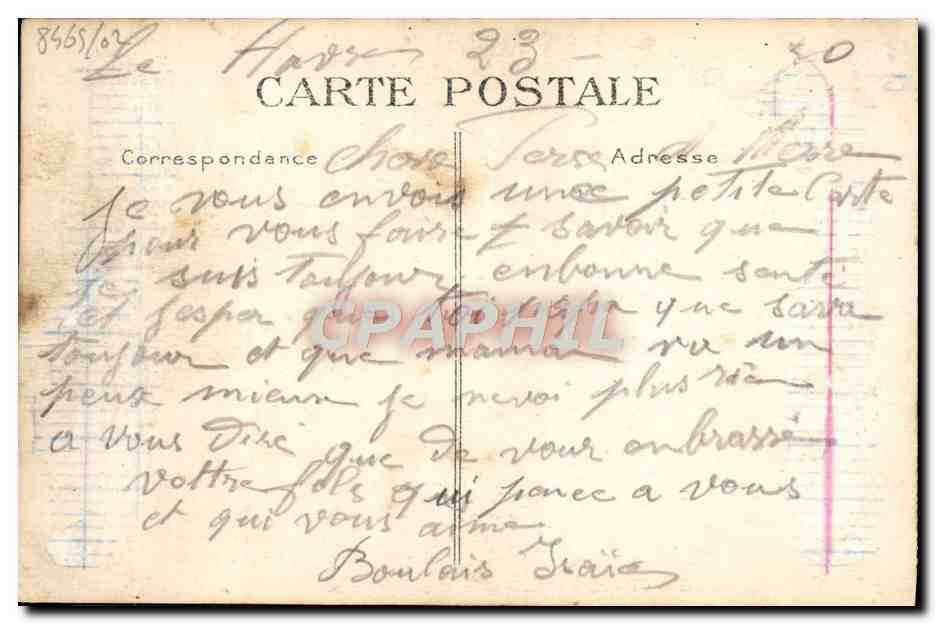 8465/02
Le Havre 23 - 30
CARTE POSTALE
Correspondance Adresse
chere Perse et Merre
Je vous envois une petite Carte
pour vous faire savoir que
je suis toujour enbonne senté
et jesper que toi que sava
toujour et que maman va un
peux mieux je nevoi plus rien
a vous dire que de vour enbrassé
vottre fils qui pence a vous
et qui vous aime
Boulais
CPAPHIL